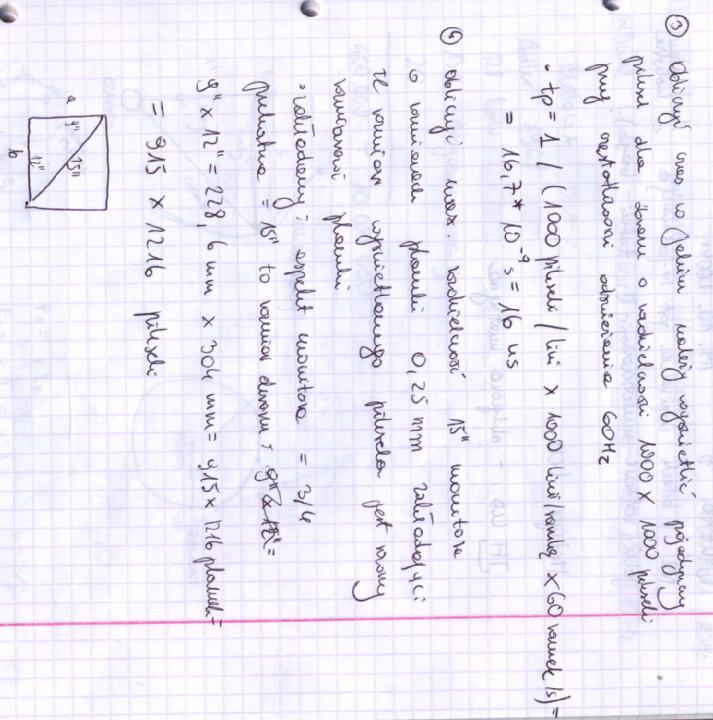 ③ Obliczyć czas w jakim należy wyświetlić pojedynczy
piksel dla ekranu o rozdzielczości 1000 x 1000 pikseli
przy częstotliwości odświeżania 60Hz
• tp = 1 / (1000 pikseli / linii x 1000 linii/ramkę x 60 ramek /s) =
= 16,7 * 10⁻⁹ s = 16 ns
④ Obliczyć max. rozdzielczość 15" monitora
o rozmiarach plamki 0,25 mm zakładając
że rozmiar wyświetlanego piksela jest równy
rozmiarowi plamki
• zakładamy: aspekt monitora = 3/4
przekątna = 15" to rozmiar ekranu: 9" x 12" =
9" x 12" = 228,6 mm x 304 mm = 915 x 1216 plamek =
= 915 x 1216 pikseli
a
9"
15"
12"
b